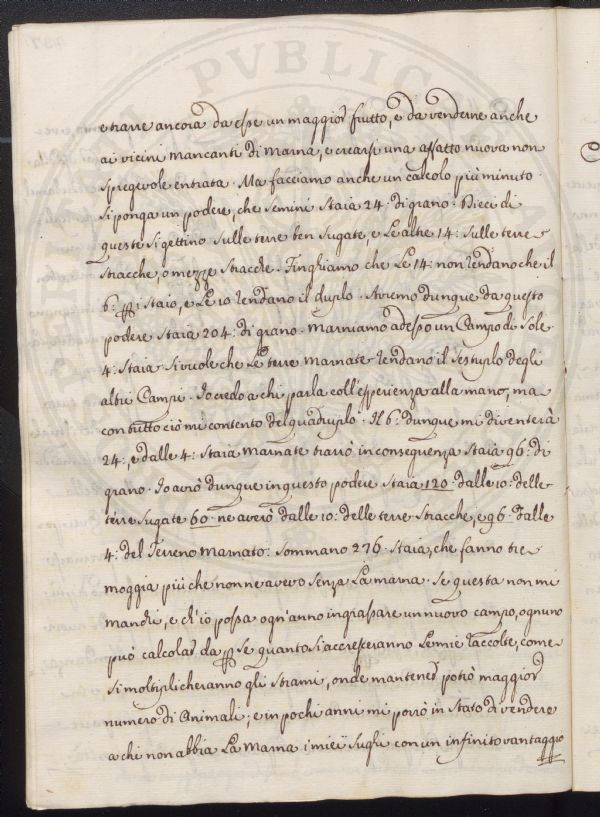 e trarre ancora da esse un maggior frutto, e da venderne anche
ai vicini mancanti di Marna, e crearsi una affatto nuova non
spregevole entrata. Ma facciamo anche un calcolo più minuto.
Si ponga un podere, che semini Staia 24: di grano. Dieci di
queste si gettino sulle terre ben sugate, e Le altre 14: sulle terre
stracche, o mezze stracche. Finghiamo che Le 14: non rendano che il
6: p Staio, e Le 10 rendano il duplo. Avremo dunque da questo
podere Staia 204: di grano. Marniamo adesso un Campo di sole
4: Staia. Si vuole che Le terre marnate rendano il sestuplo degli
altri Campi. Io credo a chi parla coll'esperienza alla mano, ma
con tutto ciò mi contento del quadruplo. Il 6: dunque mi diventerà
24:, e dalle 4: Staia marnate trarrò in conseguenza Staia 96: di
grano. Io avrò dunque in questo podere Staia 120 dalle 10: delle
terre sugate 60 ne averò dalle 10: delle terre stracche, e 96 dalle
4: del Terreno marnato: sommano 276. Staia, che fanno tre
moggia più che non ne avevo senza La marna. Se questa non mi
manchi, e ch'io possa ogn'anno ingrassare un nuovo campo, ognuno
può calcolar da p se quanto si accresceranno Le mie raccolte, come
si moltiplicheranno gli strami, onde mantener potrò maggior
numero di Animali; e in pochi anni mi porrò in stato di vendere
a chi non abbia La Marna i miei sughi con un infinito vantaggio
PVBLIC